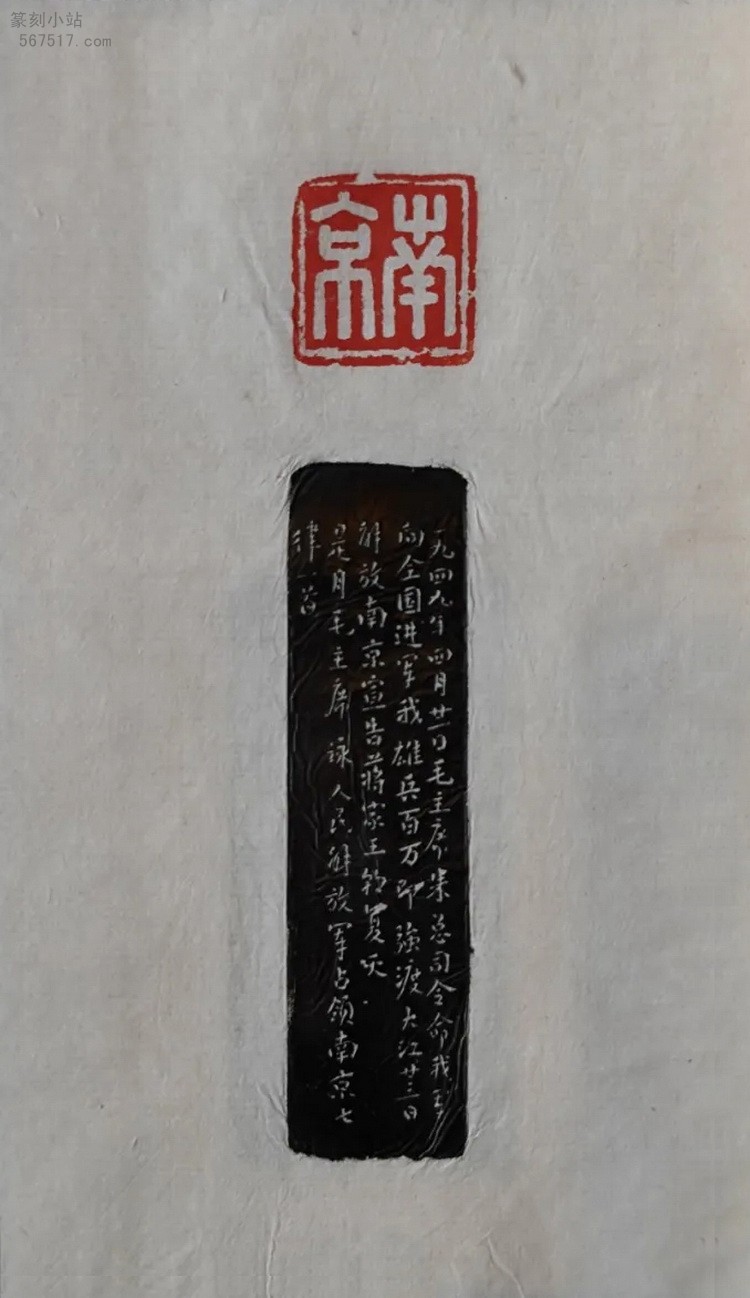 篆刻小站
567517.com
南京
一九四九年四月廿一日毛主席朱总司令命我军
向全国进军我雄兵百万即強渡大江廿三日
解放南京宣告蒋家王朝复灭
是月毛主席詠人民解放军占领南京七
律一首